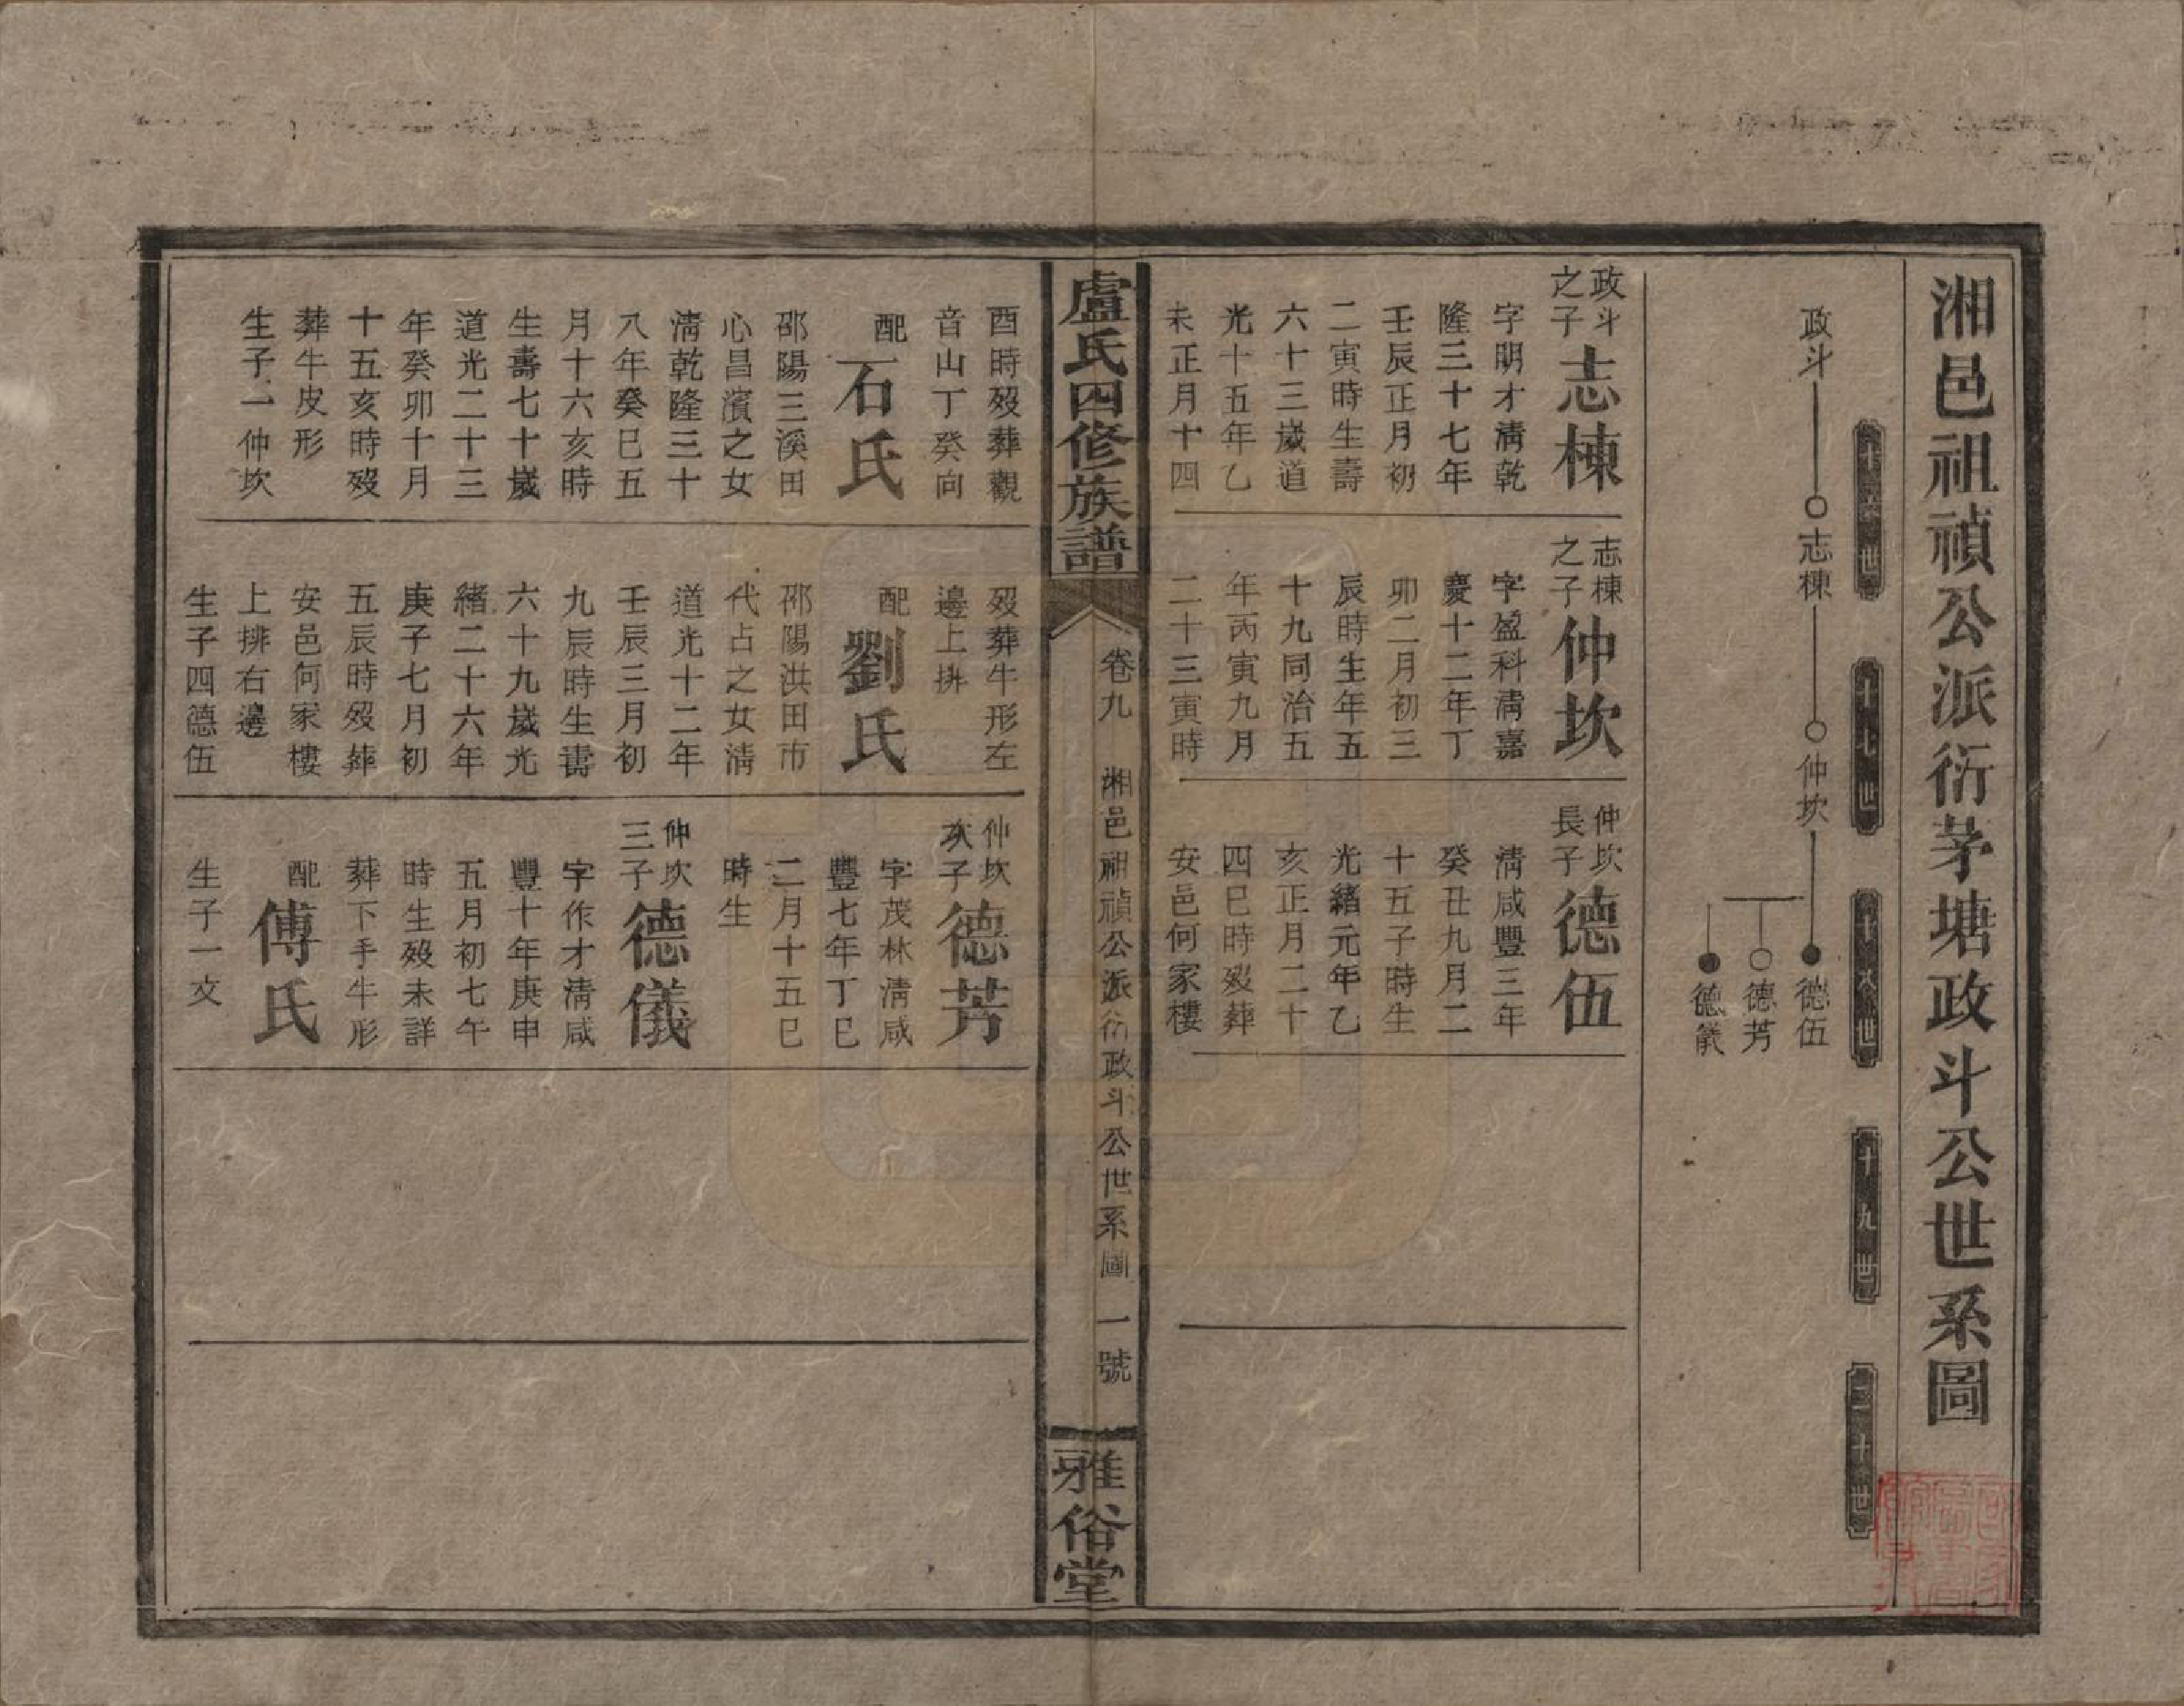 湘邑祖禎公派衍茅塘政斗公世系圖
十六世
十七世
十八世
十九世
二十世
政斗
志棟
仲坎
德伍
德芳
德儀
政斗
之子
志棟
字明才清乾
隆三十七年
壬辰正月初
二寅時生壽
六十三歲道
光十五年乙
未正月十四
志棟
之子
仲坎
字盈科清嘉
慶十二年丁
卯二月初三
辰時生年五
十九同治五
年丙寅九月
二十三寅時
仲坎
長子
德伍
清咸豐三年
癸丑九月二
十五子時生
光緒元年乙
亥正月二十
四巳時歿葬
安邑何家樓
盧氏四修族譜
卷九
湘邑祖禎公派衍政斗公世系圖
一號
雅俗堂
酉時歿葬觀
音山丁癸向
配
石氏
邵陽三溪田
心昌濱之女
清乾隆三十
八年癸巳五
月十六亥時
生壽七十歲
道光二十三
年癸卯十月
十五亥時歿
葬牛皮形
生子一仲坎
歿葬牛形左
邊上排
配
劉氏
邵陽洪田市
代占之女清
道光十二年
壬辰三月初
九辰時生壽
六十九歲光
緒二十六年
庚子七月初
五辰時歿葬
安邑何家樓
上排右邊
生子四德伍
仲坎
次子
德芳
字茂林清咸
豐七年丁巳
二月十五巳
時生
仲坎
三子
德儀
字作才清咸
豐十年庚申
五月初七午
時生歿未詳
葬下手牛形
配
傅氏
生子一文